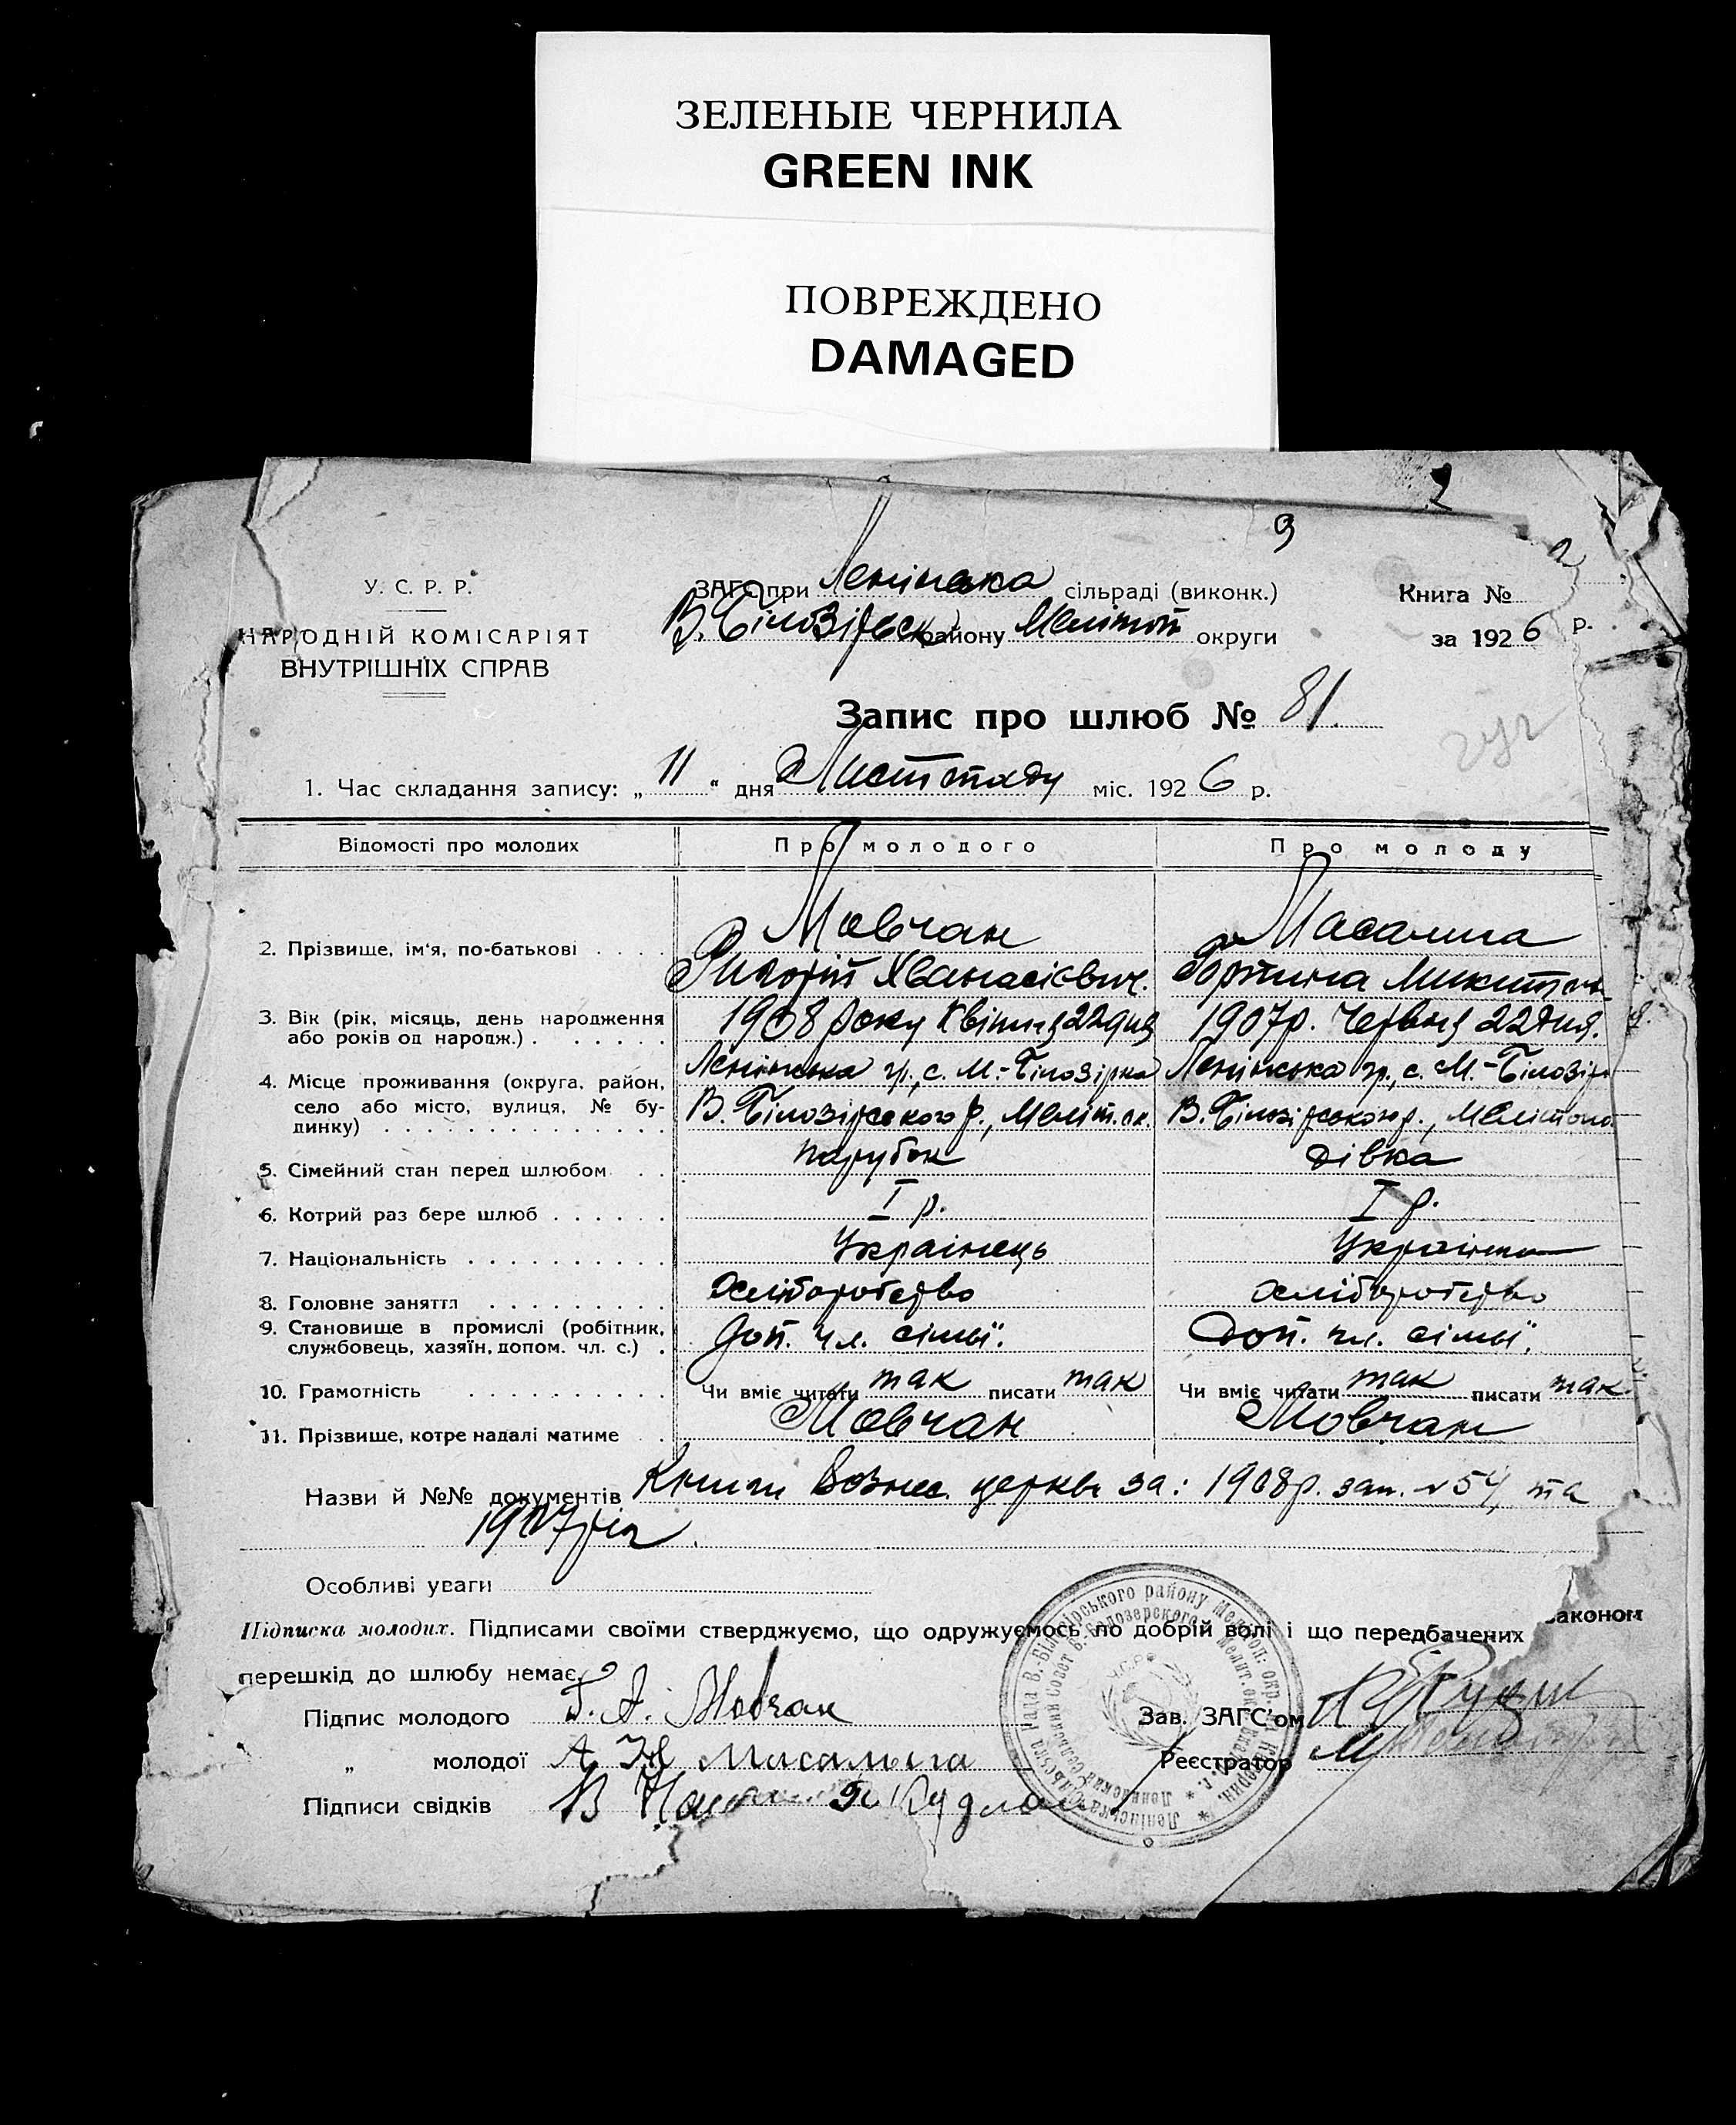 ЗЕЛЕНЫЕ ЧЕРНИЛА
GREEN INK
ПОВРЕЖДЕНО
DAMAGED
2
9
2
У. С. Р. Р.
НАРОДНІЙ КОМІСАРІЯТ
ВНУТРІШНІХ СПРАВ
ЗАГС при Ленінська сільраді (виконк.)
В. Білозірськ району Меліт округи
Книга №
за 1926 р.
Запис про шлюб № 81.
1. Час складання запису: „ 11 " дня Листопаду міс. 1926 р.
Відомості про молодих Про молодого Про молоду
2. Прізвище, ім'я, по-батькові Мовчан Масалига
Хванасієвич. Микит
3. Вік (рік, місяць, день народження 1908 року Квітня 22 дня 1907 р. Червня 22 дня.
або років од народж.)
4. Місце проживання (округа, район, Ленінська гр., с. М.-Білозірка Ленінська гр., с. М.-Білозір
село або місто, вулиця, № бу- В. Білозірського р., Меліт. ок. В. Білозірського р., Мелітопо
динку)
5. Сімейний стан перед шлюбом парубок дівка
6. Котрий раз бере шлюб I р. I р.
7. Національність Українець Українка
8. Головне заняття хліборобство хліборобство
9. Становище в промислі (робітник, Доп. чл. сімьї. Доп. чл. сімьї.
службовець, хазяїн, допом. чл. с.)
10. Грамотність Чи вміє читати так писати так Чи вміє читати так писати так
11. Прізвище, котре надалі матиме Мовчан Мовчан
Назви й №№ документів Книги Вознес. церкви за: 1908 р. зап. № 54, та
1907
Особливі уваги
Підписка молодих. Підписами своїми стверджуємо, що одружуємось по добрій волі і що передбачених законом
перешкід до шлюбу немає.
Підпис молодого Г. А. Мовчан Зав. ЗАГС'ом
„ молодої А Н Масалыга Реєстратор
Підписи свідків В
Ленінська Сільська Рада В.-Білозірського району Мелітоп: окр. Катерин.
Ленинская Сельский Совет В. Белозерского Мелит. ок
УСРР